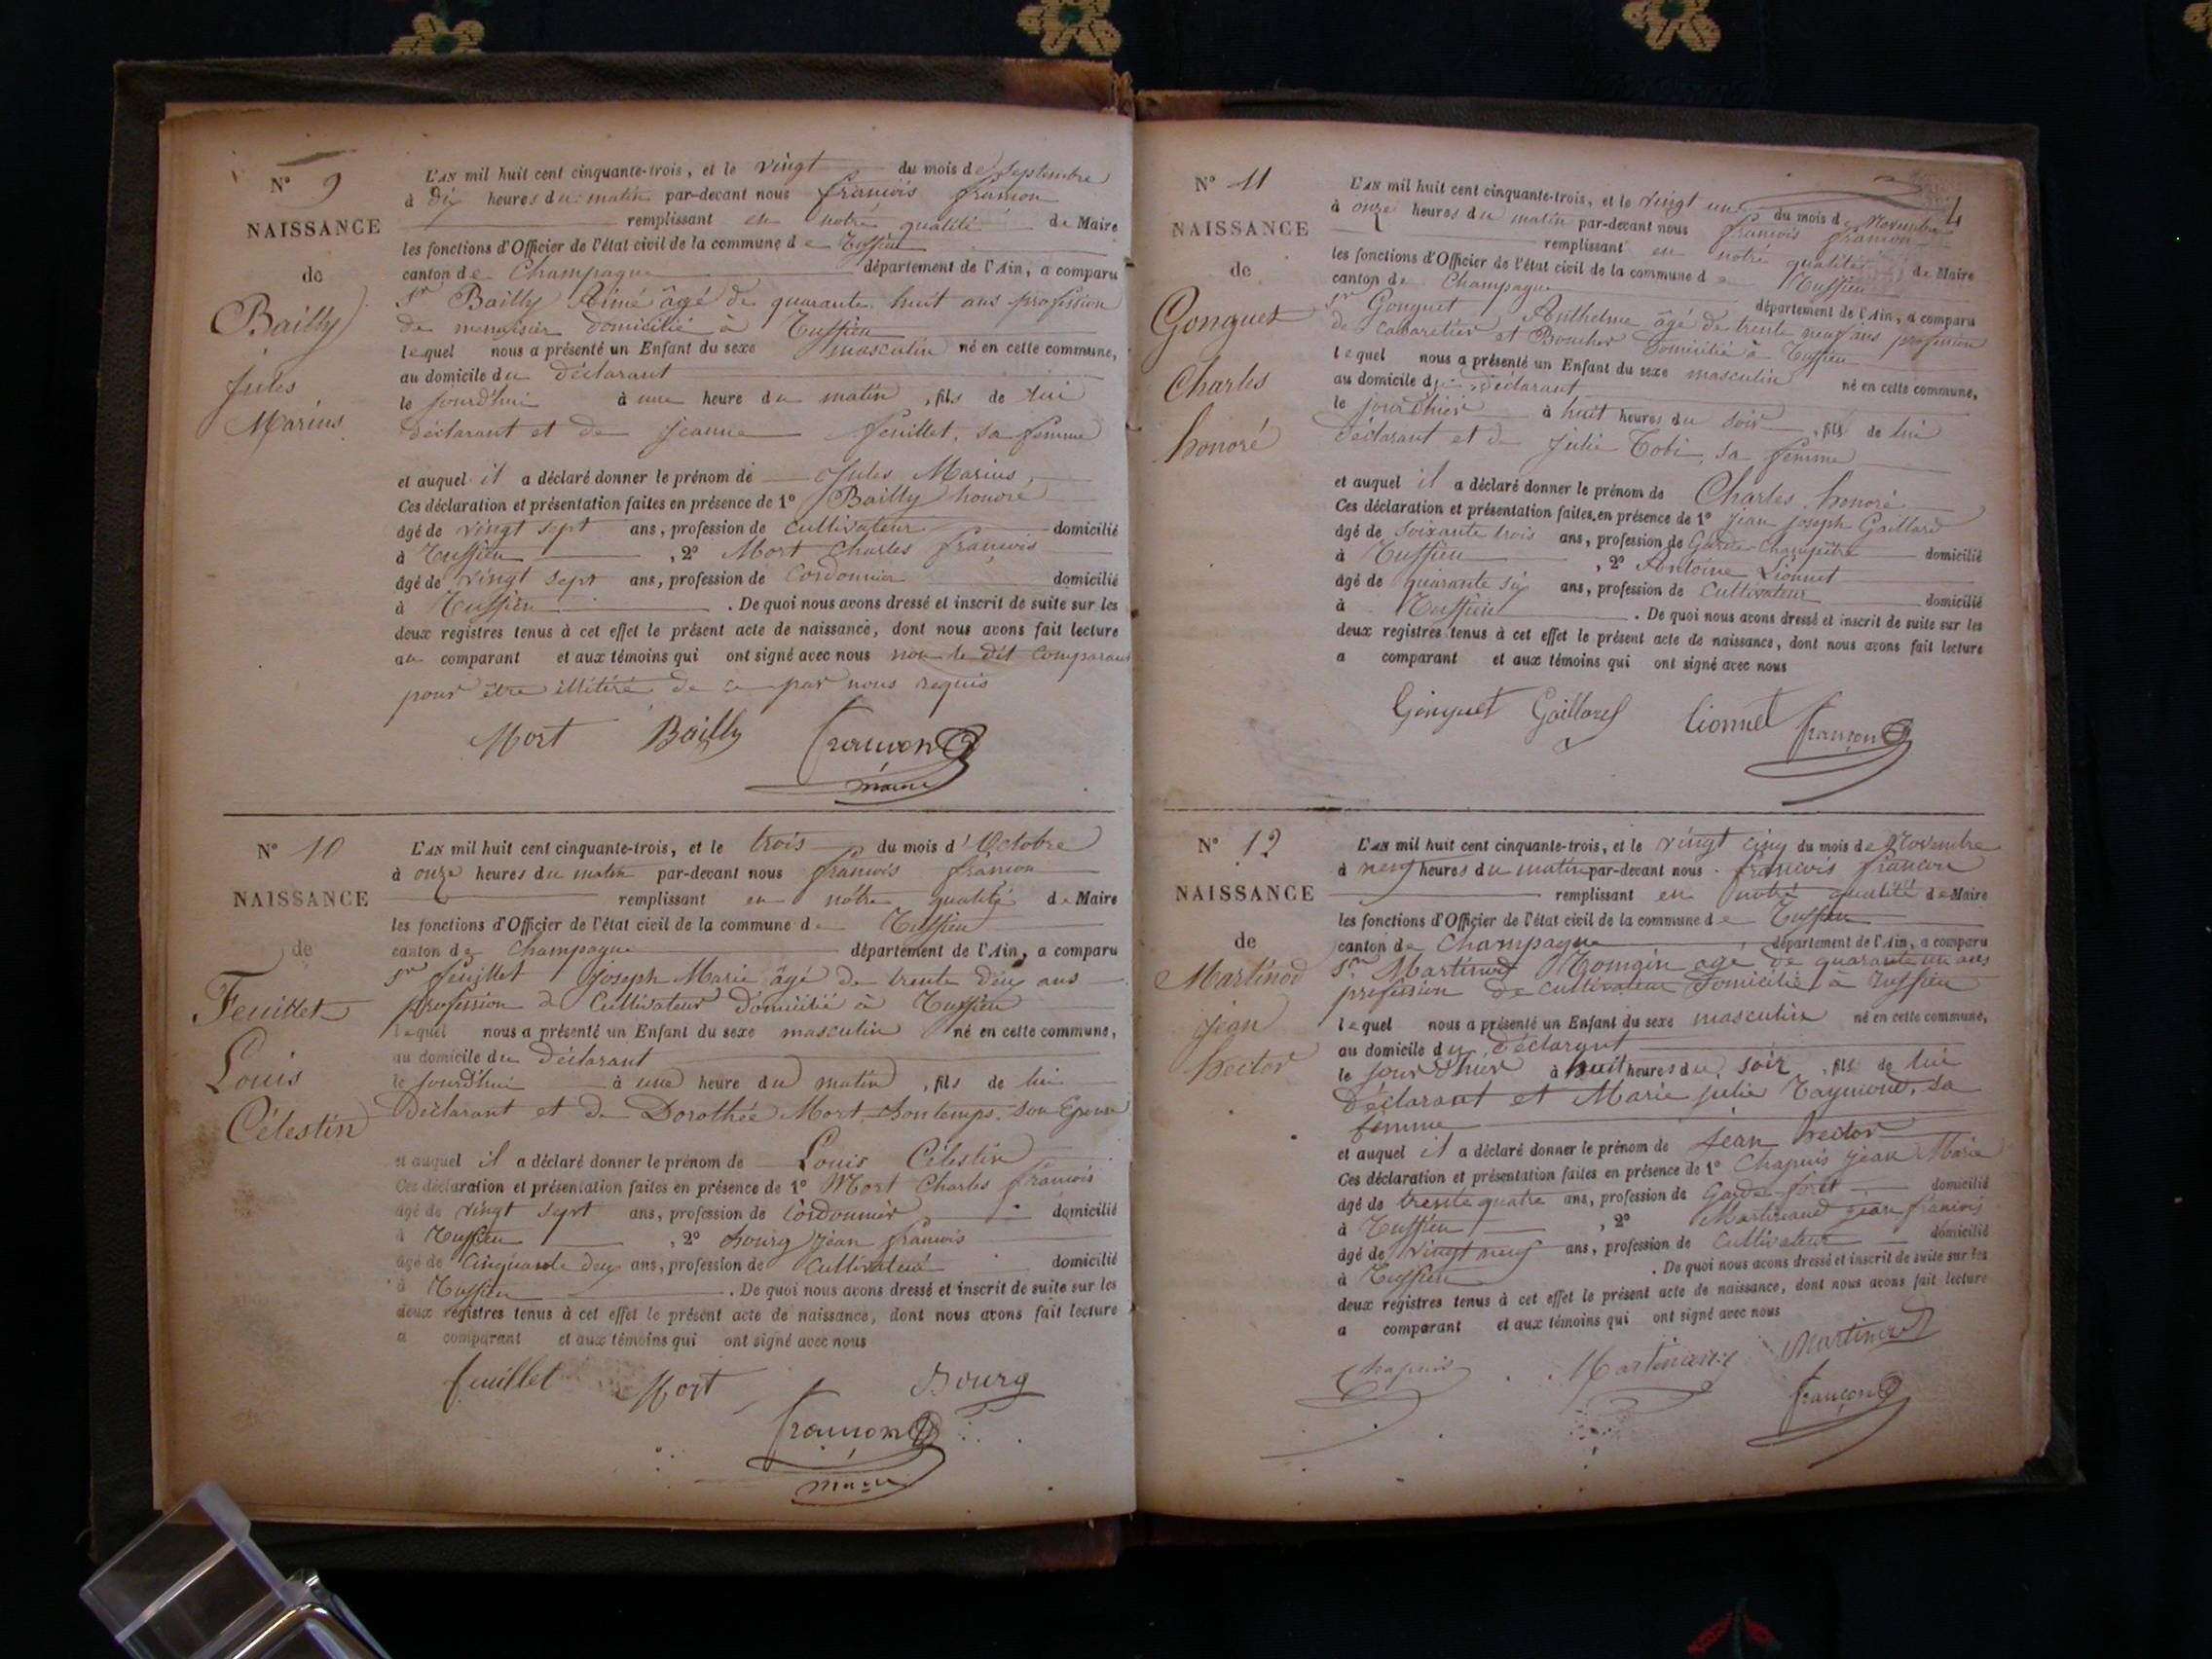 N° 9
NAISSANCE
de
Bailly
jules
Marius
L'AN mil huit cent cinquante-trois, et le vingt du mois de Septembre
à dix heures du matin par-devant nous françois françon
remplissant en notre qualité de Maire
les fonctions d'Officier de l'état civil de la commune de Tussieu
canton de Champagne département de l'Ain, a comparu
Sr Bailly Aimé âgé de quarante huit ans profession
de menuisier domicilié à Tussieu
lequel nous a présenté un Enfant du sexe masculin né en cette commune,
au domicile du déclarant
le jourd'hui à une heure du matin, fils de lui
déclarant et de Jeanne feuillet, sa femme
et auquel il a déclaré donner le prénom de Jules Marius,
Ces déclaration et présentation faites en présence de 1° Bailly honoré
âgé de vingt sept ans, profession de cultivateur domicilié
à Tussieu, 2° Mort Charles françois
âgé de vingt sept ans, profession de Cordonnier domicilié
à Tussieu. De quoi nous avons dressé et inscrit de suite sur les
deux registres tenus à cet effet le présent acte de naissance, dont nous avons fait lecture
au comparant et aux témoins qui ont signé avec nous non le dit comparant
pour être illitéré de ce par nous requis
Mort Bailly françon
maire
N° 10
NAISSANCE
de
Feuillet
Louis
Célestin
L'AN mil huit cent cinquante-trois, et le trois du mois d'Octobre
à onze heures du matin par-devant nous françois françon
remplissant en notre qualité de Maire
les fonctions d'Officier de l'état civil de la commune de Tussieu
canton de Champagne département de l'Ain, a comparu
Sr feuillet joseph Marie âgé de trente deux ans
profession de Cultivateur domicilié à Tussieu
lequel nous a présenté un Enfant du sexe masculin né en cette commune,
au domicile du déclarant
le jourd'hui à une heure du matin, fils de lui
déclarant et de Dorothée Mort-bontemps, son Epouse
et auquel il a déclaré donner le prénom de Louis Célestin
Ces déclaration et présentation faites en présence de 1° Mort Charles françois
âgé de vingt sept ans, profession de Cordonnier domicilié
à Tussieu, 2° bourg jean françois
âgé de Cinquante deux ans, profession de Cultivateur domicilié
à Tussieu. De quoi nous avons dressé et inscrit de suite sur les
deux registres tenus à cet effet le présent acte de naissance, dont nous avons fait lecture
a comparant et aux témoins qui ont signé avec nous
feuillet Mort Bourg
françon
maire
4
N° 11
NAISSANCE
de
Gonguet
Charles
honoré
L'AN mil huit cent cinquante-trois, et le vingt une du mois de Novembre
à onze heures du matin par-devant nous françois françon
remplissant en notre qualité de Maire
les fonctions d'Officier de l'état civil de la commune de Tussieu
canton de Champagne département de l'Ain, a comparu
Sr Gonguet Anthelme âgé de trente neuf ans profession
de Cabaretier et Boucher domicilié à Tussieu
lequel nous a présenté un Enfant du sexe masculin né en cette commune,
au domicile du déclarant
le jour d'hier à huit heures du soir, fils de lui
déclarant et de Julie Tobi, sa femme
et auquel il a déclaré donner le prénom de Charles honoré
Ces déclaration et présentation faites en présence de 1° Jean Joseph Gaillard
âgé de soixante trois ans, profession de Garde Champêtre domicilié
à Tussieu, 2° Antoine Lionnet
âgé de quarante six ans, profession de Cultivateur domicilié
à Tussieu. De quoi nous avons dressé et inscrit de suite sur les
deux registres tenus à cet effet le présent acte de naissance, dont nous avons fait lecture
a comparant et aux témoins qui ont signé avec nous
Gonguet Gaillard Lionnet françon
N° 12
NAISSANCE
de
Martinod
jean
hector
L'AN mil huit cent cinquante-trois, et le vingt cinq du mois de Novembre
à neuf heures du matin par-devant nous françois françon
remplissant en notre qualité de Maire
les fonctions d'Officier de l'état civil de la commune de Tussieu
canton de Champagne département de l'Ain, a comparu
Sr Martinod Romain agé de quarante un ans
profession de cultivateur domicilié à Tussieu
lequel nous a présenté un Enfant du sexe masculin né en cette commune,
au domicile du déclarant
le jour d'hier à huit heures du soir, fils de lui
déclarant et Marie julie Raymond, sa
femme
et auquel il a déclaré donner le prénom de jean hector
Ces déclaration et présentation faites en présence de 1° Chapuis jean Marie
âgé de trente quatre ans, profession de Garde-forêt domicilié
à Tussieu, 2° Martinand jean françois
âgé de vingt neuf ans, profession de Cultivateur domicilié
à Tussieu. De quoi nous avons dressé et inscrit de suite sur les
deux registres tenus à cet effet le présent acte de naissance, dont nous avons fait lecture
a comparant et aux témoins qui ont signé avec nous
Chapuis Martinand Martinod
françon